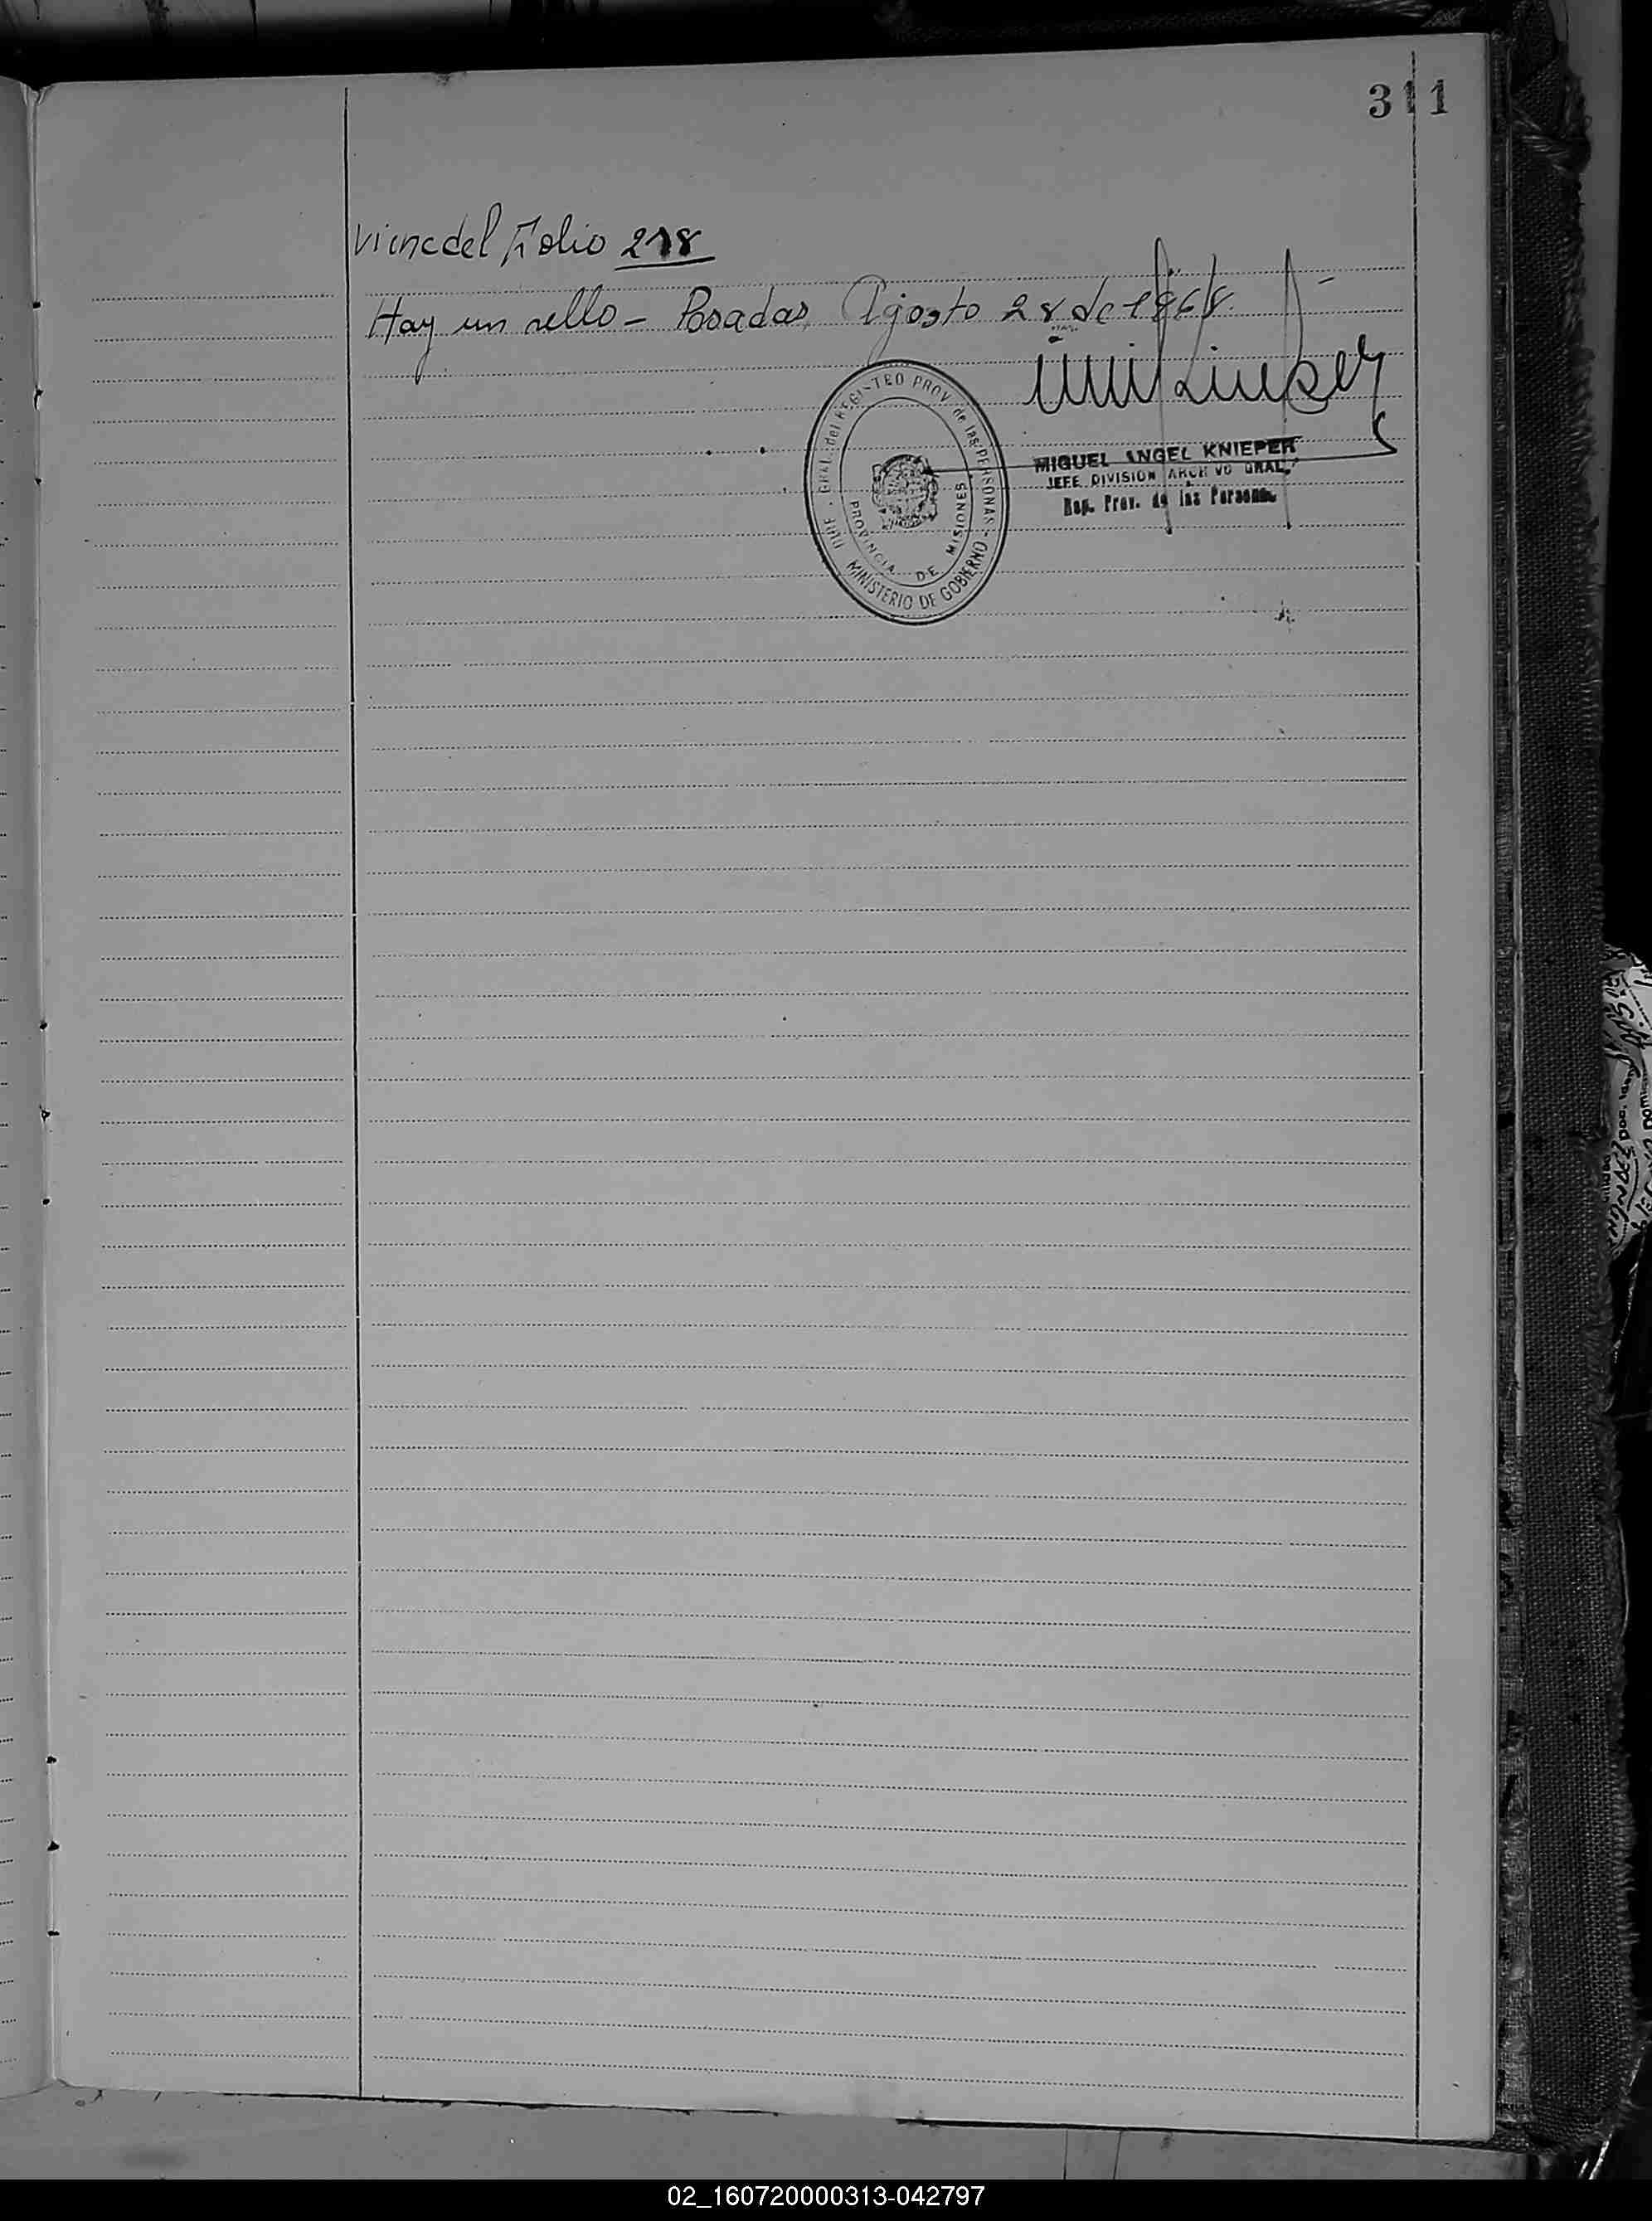 311
Viene del Folio 218
Hay un sello - Posadas, Agosto 28 de 1968.
DIRE. GRAL. del REGISTRO PROV. de las PERSONAS
MINISTERIO DE GOBIERNO
PROVINCIA DE MISIONES
MIGUEL ANGEL KNIEPER
JEFE DIVISION ARCHIVO GRAL.
Reg. Prov. de las Personas
02_160720000313-042797